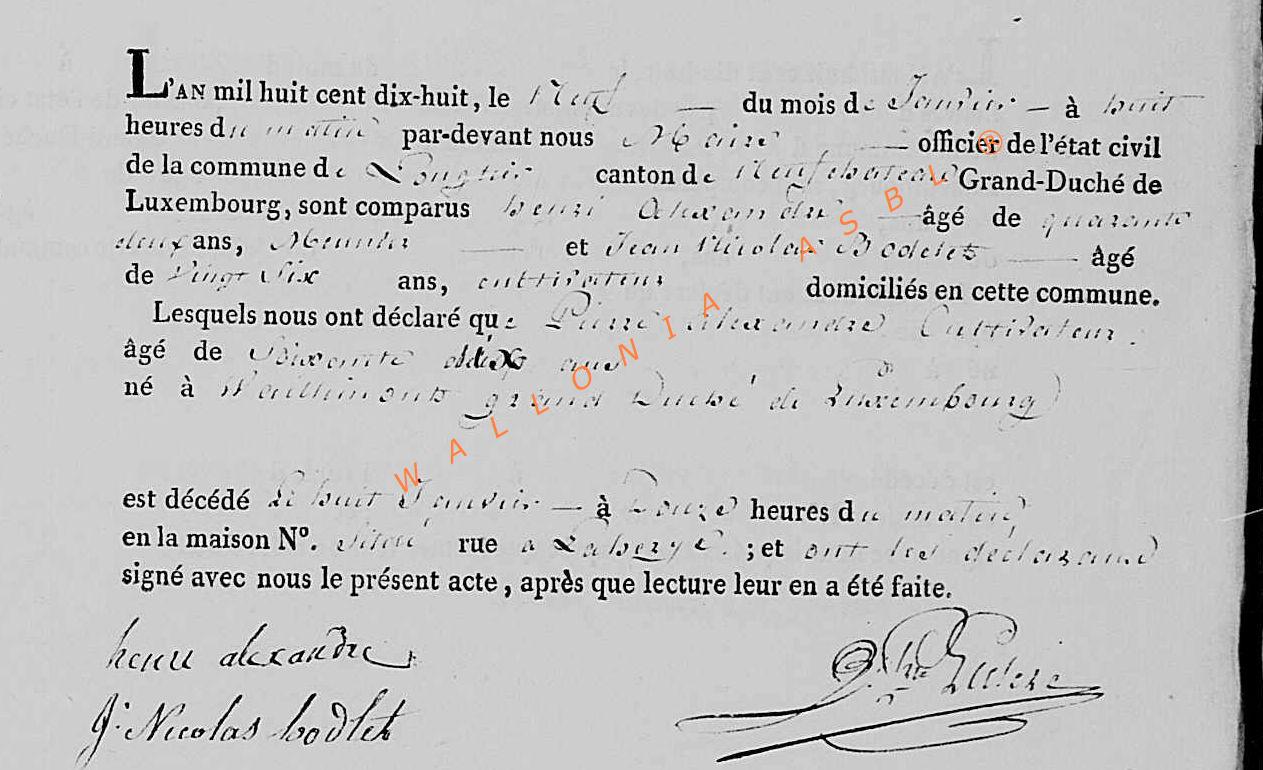 L'AN mil huit cent dix-huit, le Neuf du mois de Janvier à huit
heures du matin par-devant nous Maire officier de l'état civil
de la commune de Longlier canton de Neufchateau Grand-Duché de
Luxembourg, sont comparus henri Alexandre âgé de quarante
deux ans, Meunier et Jean Nicolas Bodelet âgé
de Vingt Six ans, cultivateur domiciliés en cette commune.
Lesquels nous ont déclaré que Pierre Alexandre Cultivateur
âgé de Soixante ans
né à grand Duché de Luxembourg
est décédé le huit Janvier à onze heures du matin
en la maison N°. rue a Lahérye ; et ont les déclarans
signé avec nous le présent acte, après que lecture leur en a été faite.
henri alexandre
J. Nicolas bodlet
WALLONIA ASBL ®